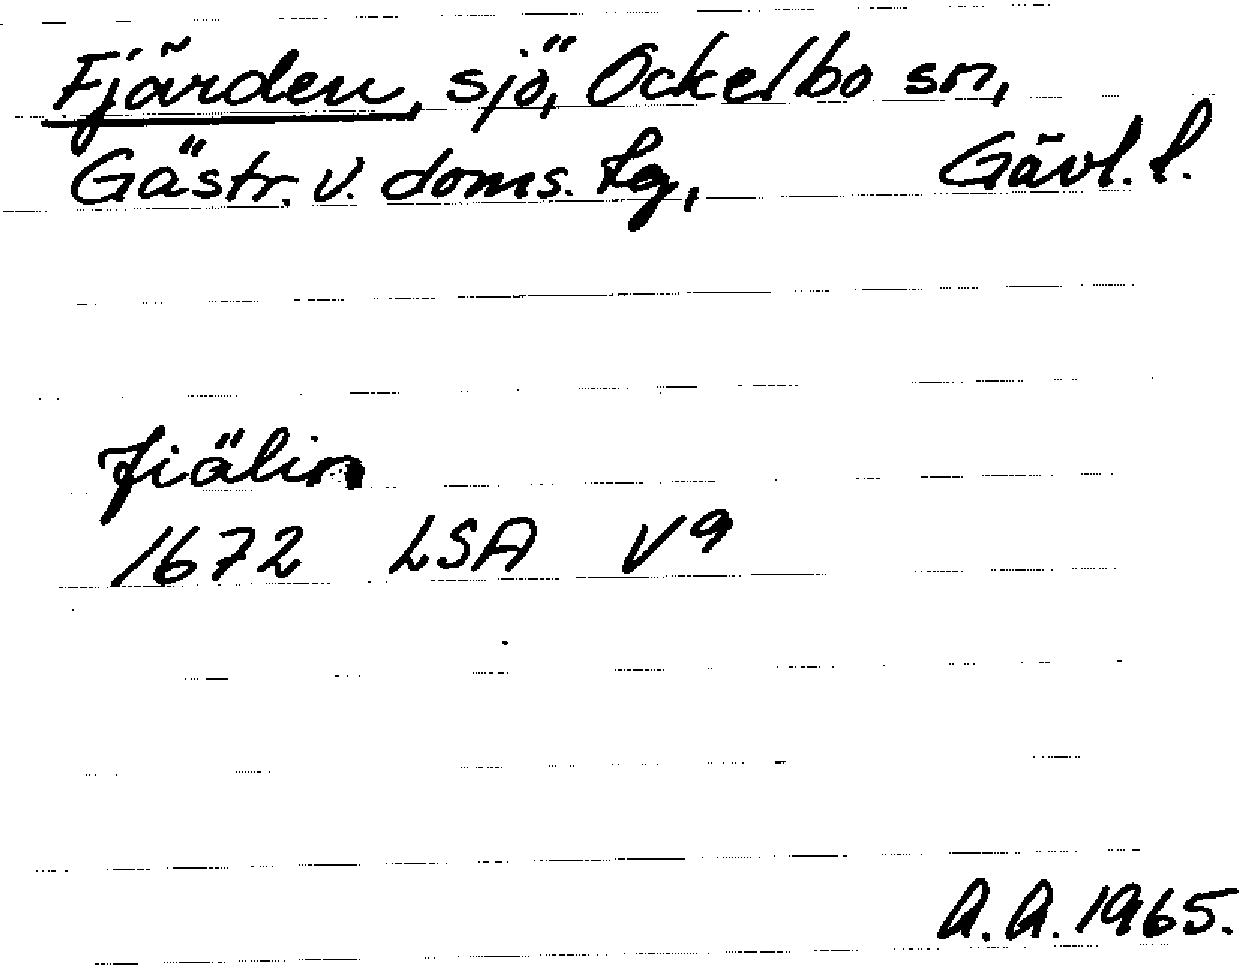 Fjärden, sjö, Ockelbo sn,
Gästr. v. doms. tg, Gävl. l.
fiälin
1672 LSA V9
A.A. 1965.